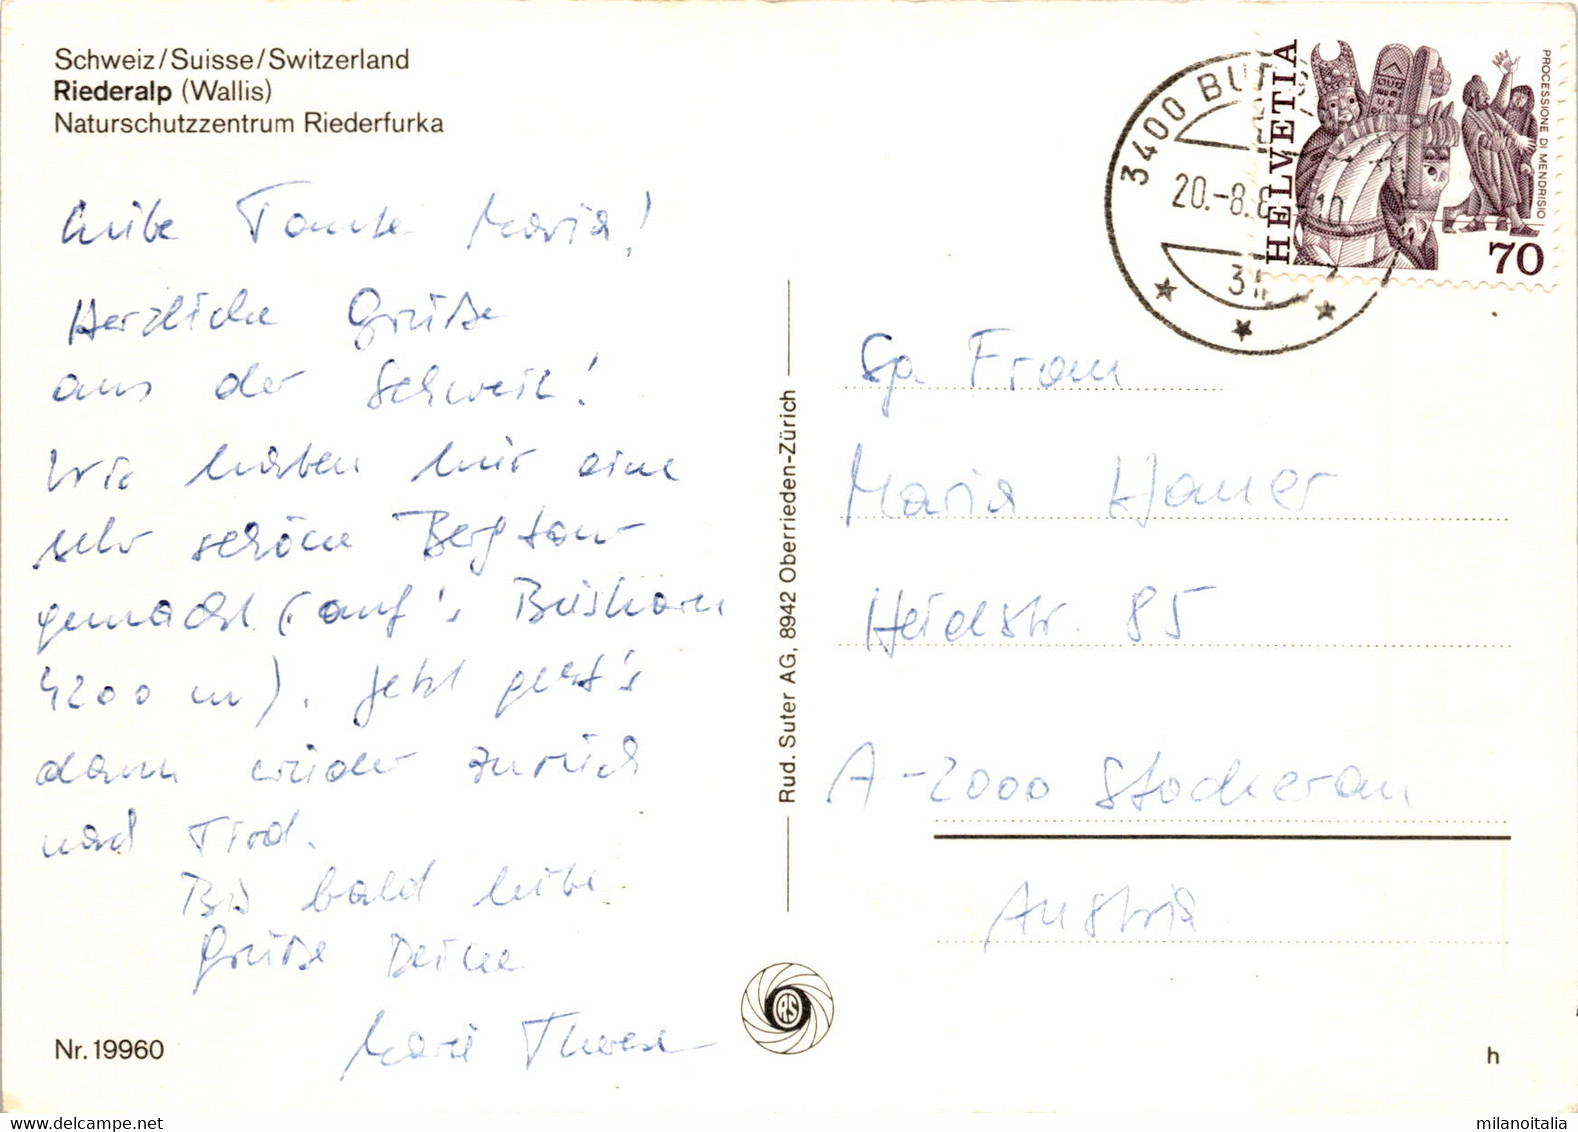 Schweiz/Suisse/Switzerland
Riederalp (Wallis)
Naturschutzzentrum Riederfurka
Liebe Tante Maria!
Herzliche Grüße
aus der Schweiz!
Wir haben hier eine
sehr schöne Bergtour
gemacht (auf's Bishorn
4200 m). Jetzt geht's
dann wieder zurück
nach Tirol.
Bis bald liebe
Grüße Deine
Marie Therese
Nr. 19960
Rud. Suter AG, 8942 Oberrieden-Zürich
RS
3400 BU
20.-8.8
10
HELVETIA
PROCESSIONE DI MENDRISIO
70
Frau
Maria Hauer
Heidstr. 85
A-2000 Stockerau
Austria
h
milanoitalia